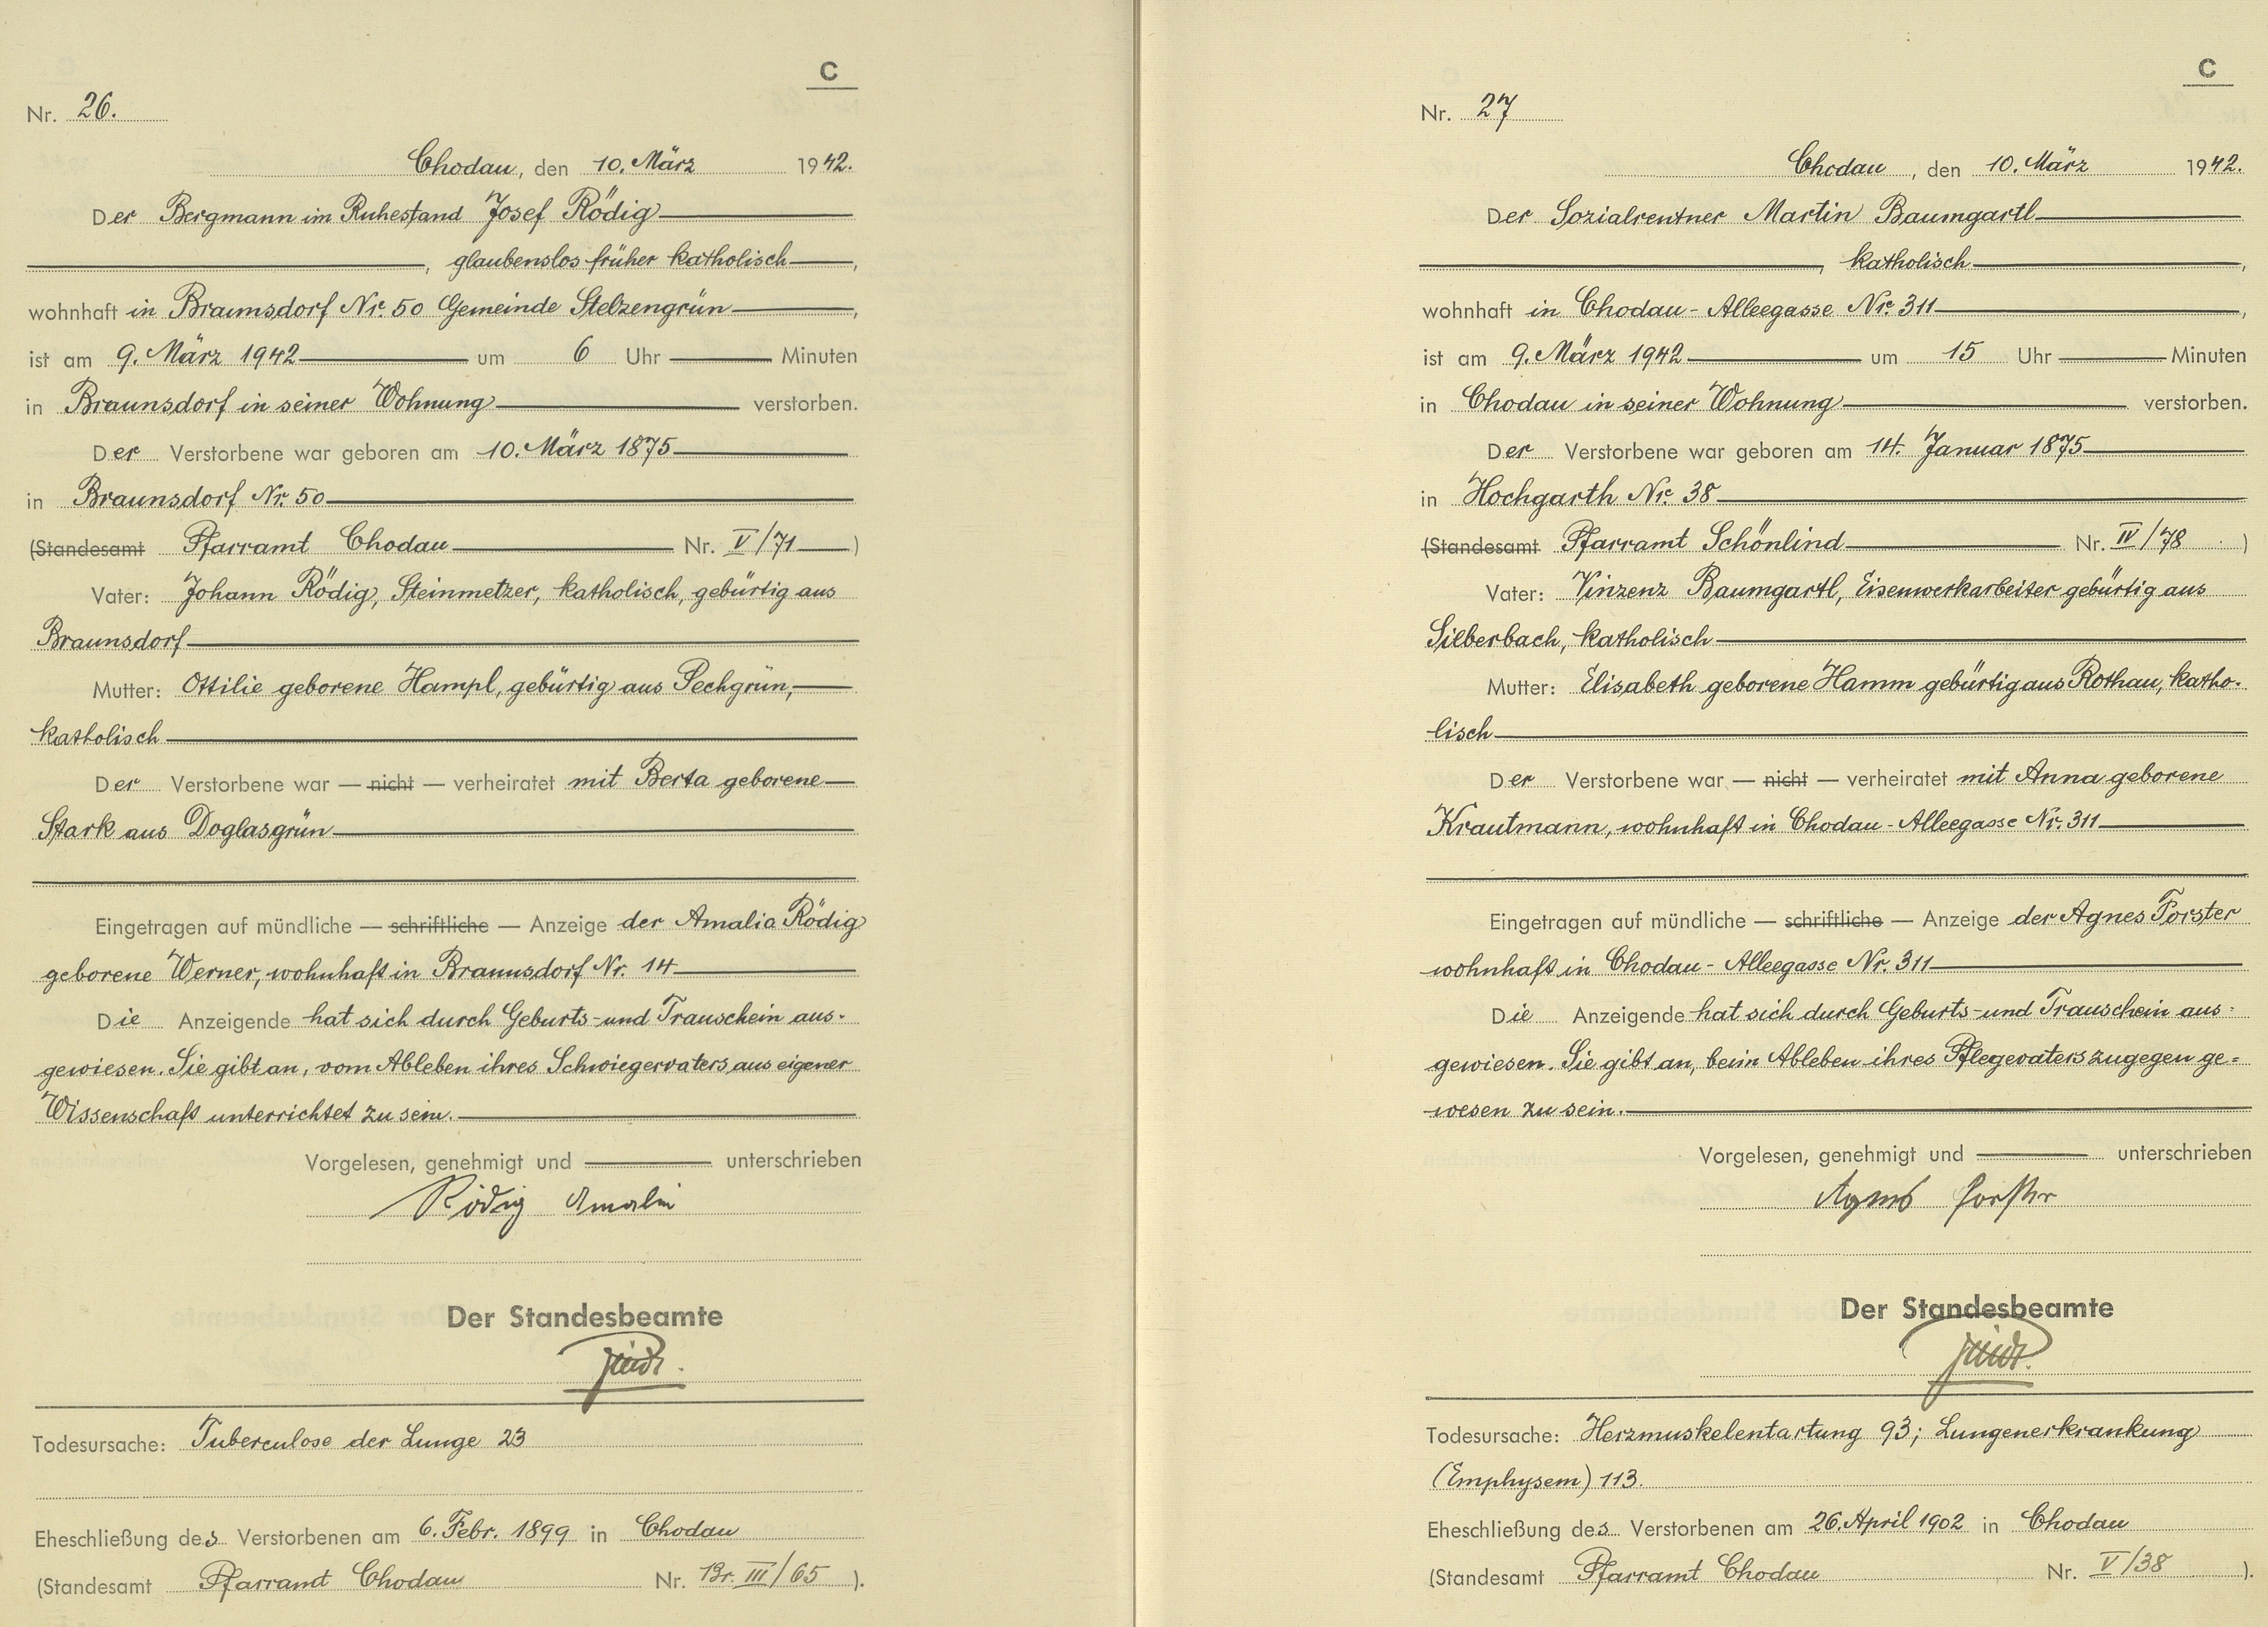 C
Nr. 26.
Chodau, den 10. März 1942.
Der Bergmann im Ruhestand Josef Rödig
, glaubenslos früher katholisch,
wohnhaft in Braunsdorf Nr. 50 Gemeinde Stelzengrün,
ist am 9. März 1942 um 6 Uhr Minuten
in Braunsdorf in seiner Wohnung verstorben.
Der Verstorbene war geboren am 10. März 1875
in Braunsdorf Nr. 50
(Standesamt Pfarramt Chodau Nr. V/71)
Vater: Johann Rödig, Steinmetzer, katholisch, gebürtig aus
Braunsdorf
Mutter: Ottilie geborene Hampl, gebürtig aus Pechgrün,
katholisch
Der Verstorbene war — nicht — verheiratet mit Berta geborene
Stark aus Doglasgrün
Eingetragen auf mündliche — schriftliche — Anzeige der Amalia Rödig
geborene Werner, wohnhaft in Braunsdorf Nr. 14
Die Anzeigende hat sich durch Geburts- und Trauschein aus-
gewiesen. Sie gibt an, vom Ableben ihres Schwiegervaters aus eigener
Wissenschaft unterrichtet zu sein.
Vorgelesen, genehmigt und unterschrieben
Rödig Amalia
Der Standesbeamte
Todesursache: Tuberculose der Lunge 23
Eheschließung des Verstorbenen am 6. Febr. 1899 in Chodau
(Standesamt Pfarramt Chodau Nr. Br. III/65).
C
Nr. 27
Chodau, den 10. März 1942.
Der Sozialrentner Martin Baumgartl
, katholisch,
wohnhaft in Chodau - Alleegasse Nr. 311,
ist am 9. März 1942 um 15 Uhr Minuten
in Chodau in seiner Wohnung verstorben.
Der Verstorbene war geboren am 14. Januar 1875
in Hochgarth Nr. 38
(Standesamt Pfarramt Schönlind Nr. IV/78)
Vater: Vinzenz Baumgartl, Eisenwerkarbeiter gebürtig aus
Silberbach, katholisch
Mutter: Elisabeth geborene Hamm gebürtig aus Rothau, katho-
lisch
Der Verstorbene war — nicht — verheiratet mit Anna geborene
Krautmann, wohnhaft in Chodau - Alleegasse Nr. 311
Eingetragen auf mündliche — schriftliche — Anzeige der Agnes Forster
wohnhaft in Chodau - Alleegasse Nr. 311
Die Anzeigende hat sich durch Geburts- und Trauschein aus-
gewiesen. Sie gibt an, beim Ableben ihres Pflegevaters zugegen ge-
wesen zu sein.
Vorgelesen, genehmigt und unterschrieben
Agnes Forster
Der Standesbeamte
Todesursache: Herzmuskelentartung 93; Lungenerkrankung
(Emphysem) 113.
Eheschließung des Verstorbenen am 26. April 1902 in Chodau
(Standesamt Pfarramt Chodau Nr. V/38).